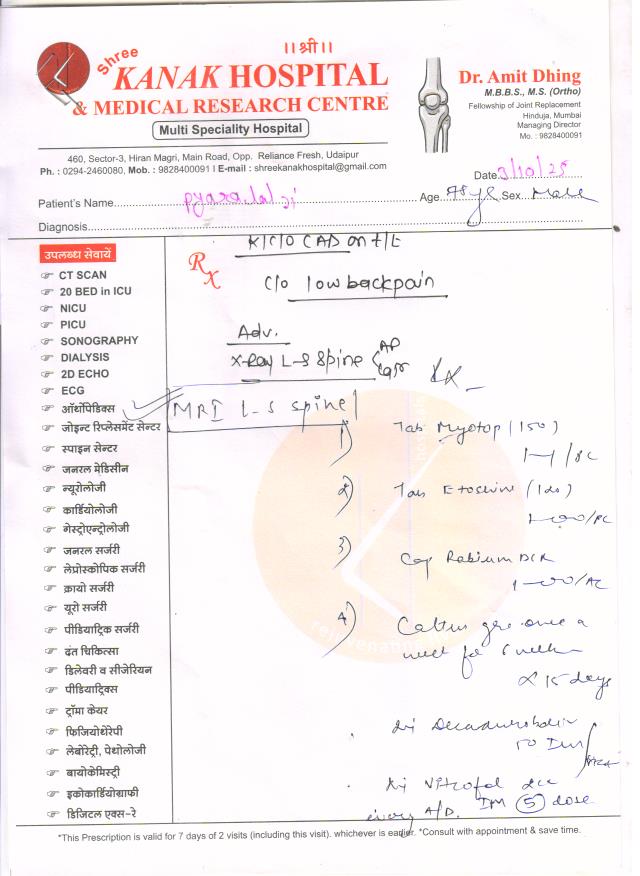 ।। श्री ।।
Shree
KANAK HOSPITAL
& MEDICAL RESEARCH CENTRE
Multi Speciality Hospital
460, Sector-3, Hiran Magri, Main Road, Opp. Reliance Fresh, Udaipur
Ph. : 0294-2460080, Mob. : 9828400091 I E-mail : shreekanakhospital@gmail.com
Dr. Amit Dhing
M.B.B.S., M.S. (Ortho)
Fellowship of Joint Replacement
Hinduja, Mumbai
Managing Director
Mo. : 9828400091
Date 3/10/25
Patient's Name Pyaralal ji Age 78 yr Sex Male
Diagnosis
K/C/O CAD on t/t
Rx
C/o low back pain
Adv.
X-Ray L-S Spine AP
MRI L-S spine
1) Tab Myotop (150)
2) Tab (120)
3) Cap Rabium DSR
4) once a
week for
X 15 days
50 IM
2cc
every A/D. IM 5 dose
उपलब्ध सेवायें
CT SCAN
20 BED in ICU
NICU
PICU
SONOGRAPHY
DIALYSIS
2D ECHO
ECG
ऑर्थोपिडिक्स
जोइन्ट रिप्लेसमेंट सेन्टर
स्पाइन सेन्टर
जनरल मेडिसीन
न्यूरोलोजी
कार्डियोलोजी
गेस्ट्रोएन्ट्रोलोजी
जनरल सर्जरी
लेप्रोस्कोपिक सर्जरी
क्रायो सर्जरी
यूरो सर्जरी
पीडियाट्रिक सर्जरी
दंत चिकित्सा
डिलेवरी व सीजेरियन
पीडियाट्रिक्स
ट्रॉमा केयर
फिजियोथेरेपी
लेबोरेट्री, पेथोलोजी
बायोकेमिस्ट्री
इकोकार्डियोग्राफी
डिजिटल एक्स-रे
*This Prescription is valid for 7 days of 2 visits (including this visit). whichever is earlier. *Consult with appointment & save time.